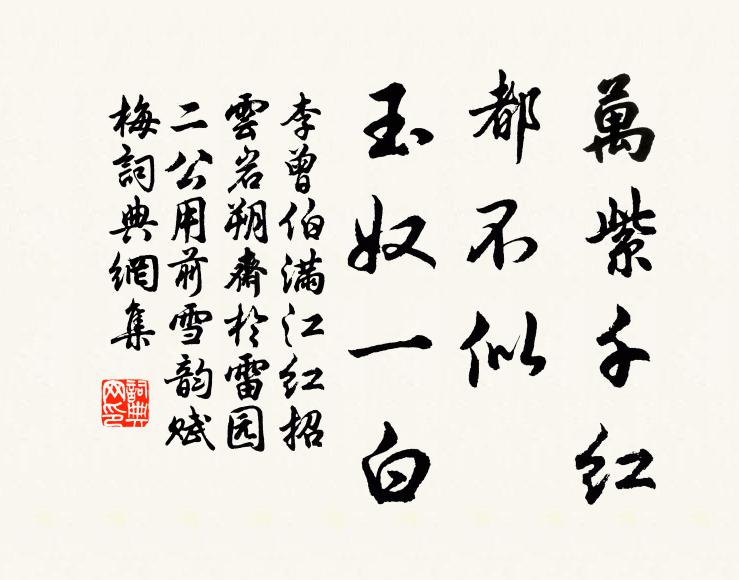 萬紫千紅
都不似
玉奴一白
李曾伯滿江紅招
雲岩朔齋於雷园
二公用前雪韵赋
梅詞典網集
詞典网印